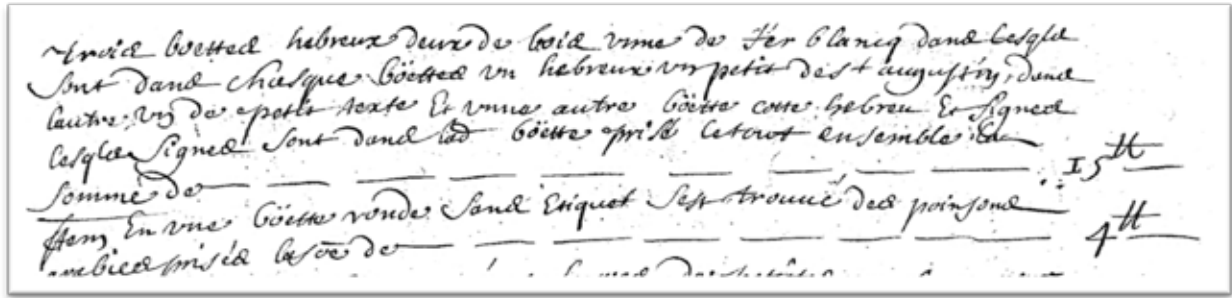 Trois boettes hebreux deux de bois vnne de fer blancq dans lesqles
sont dans chasque böettes vn hebreux vn petit de st augustin, dans
lautre vn de petit texte Et vnne autre böette cotte hebreu Et signes
lesqles signes sont dans lad böette prisé letout ensemble la
somme de 15 ₶
Item En vne böette ronde sans Etiquet sest trouué des poinsons
arabices prisés la soē de 4 ₶